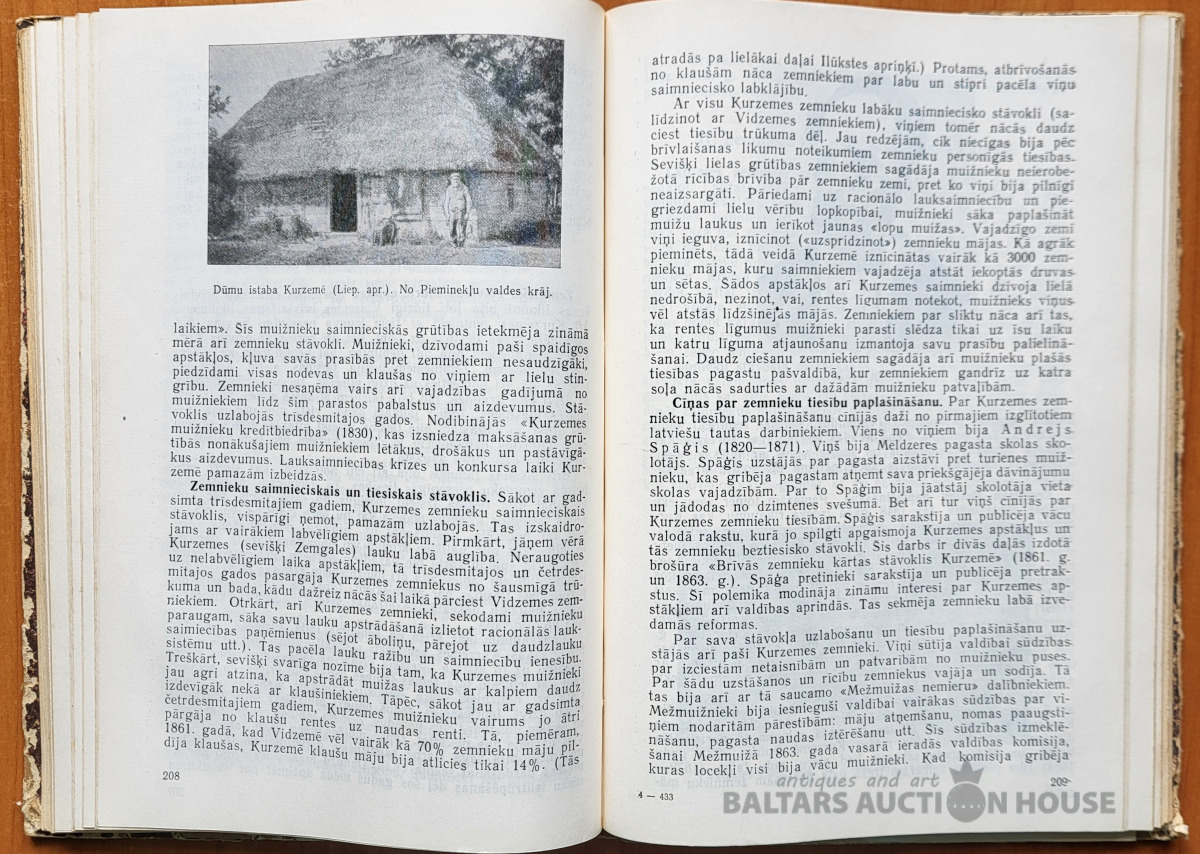 Dūmu istaba Kurzemē (Liep. apr.). No Pieminekļu valdes krāj.
laikiem». Šīs muižnieku saimnieciskās grūtības ietekmēja zināmā
mērā arī zemnieku stāvokli. Muižnieki, dzīvodami paši spaidīgos
apstākļos, kļuva savās prasībās pret zemniekiem nesaudzīgāki,
piedzīdami visas nodevas un klaušas no viņiem ar lielu stin-
grību. Zemnieki nesaņēma vairs arī vajadzības gadījumā no
muižniekiem līdz šim parastos pabalstus un aizdevumus. Stā-
voklis uzlabojās trīsdesmitajos gados. Nodibinājās «Kurzemes
muižnieku kredītbiedrība» (1830), kas izsniedza maksāšanas grū-
tībās nonākušajiem muižniekiem lētākus, drošākus un pastāvīgā-
kus aizdevumus. Lauksaimniecības krīzes un konkursa laiki Kur-
zemē pamazām izbeidzās.
Zemnieku saimnieciskais un tiesiskais stāvoklis. Sākot ar gad-
simta trīsdesmitajiem gadiem, Kurzemes zemnieku saimnieciskais
stāvoklis, vispārīgi ņemot, pamazām uzlabojās. Tas izskaidro-
jams ar vairākiem labvēlīgiem apstākļiem. Pirmkārt, jāņem vērā
Kurzemes (sevišķi Zemgales) lauku labā auglība. Neraugoties
uz nelabvēlīgiem laika apstākļiem, tā trīsdesmitajos un četrdes-
mitajos gados pasargāja Kurzemes zemniekus no šausmīgā trū-
kuma un bada, kādu dažreiz nācās šai laikā pārciest Vidzemes zem-
niekiem. Otrkārt, arī Kurzemes zemnieki, sekodami muižnieku
paraugam, sāka savu lauku apstrādāšanā izlietot racionālās lauk-
saimiecības paņēmienus (sējot āboliņu, pārejot uz daudzlauku
sistēmu utt.). Tas pacēla lauku ražību un saimniecību ienesību.
Treškārt, sevišķi svarīga nozīme bija tam, ka Kurzemes muižnieki
jau agri atzina, ka apstrādāt muižas laukus ar kalpiem daudz
izdevīgāk nekā ar klaušiniekiem. Tāpēc, sākot jau ar gadsimta
četrdesmitajiem gadiem, Kurzemes muižnieku vairums jo ātri
pārgāja no klaušu rentes uz naudas renti. Tā, piemēram,
1861. gadā, kad Vidzemē vēl vairāk kā 70% zemnieku māju pil-
dīja klaušas, Kurzemē klaušu māju bija atlicies tikai 14%. (Tās
208
atradās pa lielākai daļai Ilūkstes apriņķī.) Protams, atbrīvošanās
no klaušām nāca zemniekiem par labu un stipri pacēla viņu
saimniecisko labklājību.
Ar visu Kurzemes zemnieku labāku saimniecisko stāvokli (sa-
līdzinot ar Vidzemes zemniekiem), viņiem tomēr nācās daudz
ciest tiesību trūkuma dēļ. Jau redzējām, cik niecīgas bija pēc
brīvlaišanas likumu noteikumiem zemnieku personīgās tiesības.
Sevišķi lielas grūtības zemniekiem sagādāja muižnieku neierobe-
žotā rīcības brīvība pār zemnieku zemi, pret ko viņi bija pilnīgi
neaizsargāti. Pāriedami uz racionālo lauksaimniecību un pie-
griezdami lielu vērību lopkopībai, muižnieki sāka paplašināt
muižu laukus un ierīkot jaunas «lopu muižas». Vajadzīgo zemi
viņi ieguva, iznīcinot («uzspridzinot») zemnieku mājas. Kā agrāk
pieminēts, tādā veidā Kurzemē iznīcinātas vairāk kā 3000 zem-
nieku mājas, kuru saimniekiem vajadzēja atstāt iekoptās druvas
un sētas. Šādos apstākļos arī Kurzemes saimnieki dzīvoja lielā
nedrošībā, nezinot, vai, rentes līgumam notekot, muižnieks viņus
vēl atstās līdzšinējās mājās. Zemniekiem par sliktu nāca arī tas,
ka rentes līgumus muižnieki parasti slēdza tikai uz īsu laiku
un katru līguma atjaunošanu izmantoja savu prasību palielinā-
šanai. Daudz ciešanu zemniekiem sagādāja arī muižnieku plašās
tiesības pagastu pašvaldībā, kur zemniekiem gandrīz uz katra
soļa nācās sadurties ar dažādām muižnieku patvaļībām.
Cīņas par zemnieku tiesību paplašināšanu. Par Kurzemes zem-
nieku tiesību paplašināšanu cīnījās daži no pirmajiem izglītotiem
latviešu tautas darbiniekiem. Viens no viņiem bija Andrejs
Spāģis (1820—1871). Viņš bija Meldzeres pagasta skolas sko-
lotājs. Spāģis uzstājās par pagasta aizstāvi pret turienes muiž-
nieku, kas gribēja pagastam atņemt sava priekšgājēja dāvinājumu
skolas vajadzībām. Par to Spāģim bija jāatstāj skolotāja vieta
un jādodas no dzimtenes svešumā. Bet arī tur viņš cīnījās par
Kurzemes zemnieku tiesībām. Spāģis sarakstīja un publicēja vācu
valodā rakstu, kurā jo spilgti apgaismoja Kurzemes apstākļus un
tās zemnieku beztiesisko stāvokli. Šis darbs ir divās daļās izdotā
brošūra «Brīvās zemnieku kārtas stāvoklis Kurzemē» (1861. g.
un 1863. g.). Spāģa pretinieki sarakstīja un publicēja pretrak-
stus. Šī polemika modināja zināmu interesi par Kurzemes ap-
stākļiem arī valdības aprindās. Tas sekmēja zemnieku labā izve-
damās reformas.
Par sava stāvokļa uzlabošanu un tiesību paplašināšanu uz-
stājās arī paši Kurzemes zemnieki. Viņi sūtīja valdībai sūdzības
par izciestām netaisnībām un patvarībām no muižnieku puses.
Par šādu uzstāšanos un rīcību zemniekus vajāja un sodīja. Tā
tas bija arī ar tā saucamo «Mežmuižas nemieru» dalībniekiem.
Mežmuižnieki bija iesnieguši valdībai vairākas sūdzības par vi-
ņiem nodarītām pārestībām: māju atņemšanu, nomas paaugsti-
nāšanu, pagasta naudas iztērēšanu utt. Šīs sūdzības izmeklē-
šanai Mežmuižā 1863. gada vasarā ieradās valdības komisija,
kuras locekļi visi bija vācu muižnieki. Kad komisija gribēja
4 — 433
209
antiques and art
BALTARS AUCTION HOUSE